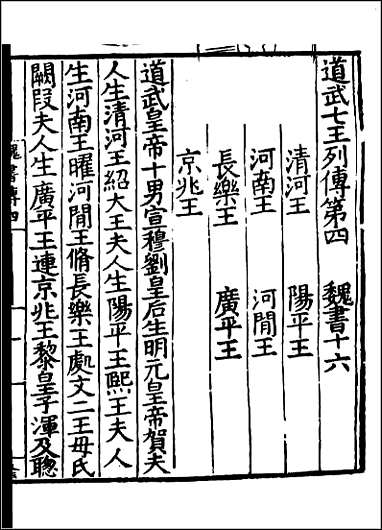 道武七王列傳第四　魏書十六
清河王　陽平王
河南王　河閒王
長樂王　廣平王
京兆王
道武皇帝十男宣穆劉皇后生明元皇帝賀夫
人生清河王紹大王夫人生陽平王熙王夫人
生河南王曜河閒王脩長樂王處文二王母氏
闕段夫人生廣平王連京兆王黎皇子渾及聦
魏書傳四